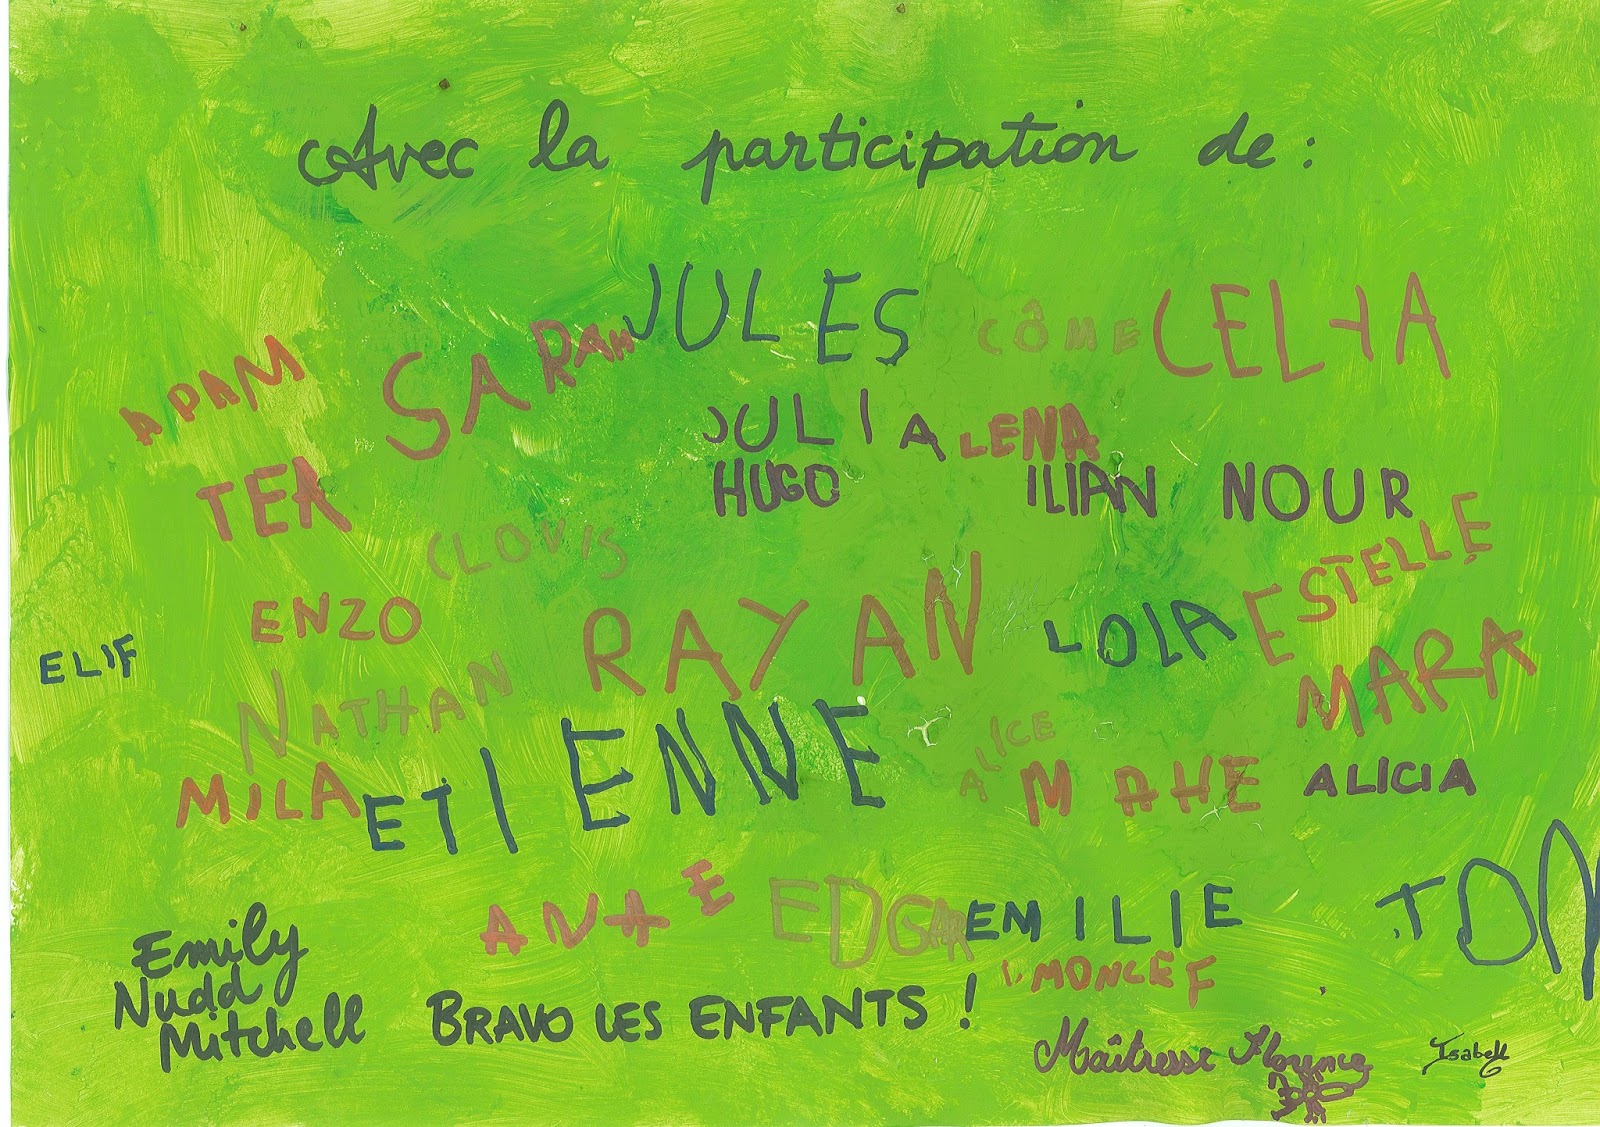 Avec la participation de :
JULES CÔME CELYA
ADAM SARAH
JULIA LENA
TEA HUGO ILIAN NOUR
CLOVIS ESTELLE
ENZO RAYAN LOLA
ELIF NATHAN MARA
MILA ETIENNE ALICE MAHE ALICIA
ANAE EDGAR EMILIE TOM
Emily
Nudd
Mitchell
MONCEF
BRAVO LES ENFANTS !
Maîtresse Florence
Isabelle